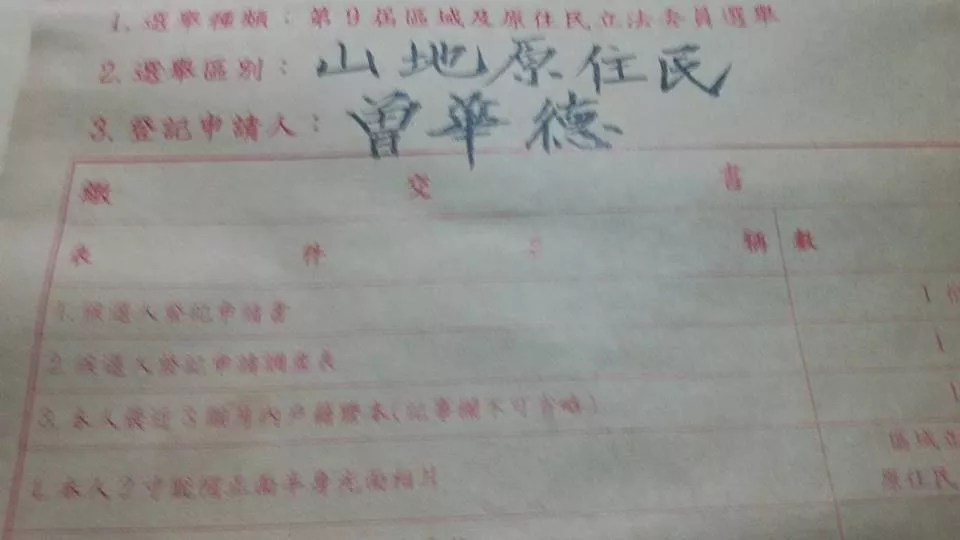 1. 選舉種類：第9屆區域及原住民立法委員選舉
2. 選舉區別：山地原住民
3. 登記申請人：曾華德
繳 交 書
表 件 名 稱 數
1. 候選人登記申請書 1
2. 候選人登記申請調查表 1
3. 本人最近3個月內戶籍謄本(記事欄不可省略) 1
區域立
4. 本人2寸脫帽正面半身光面相片
原住民